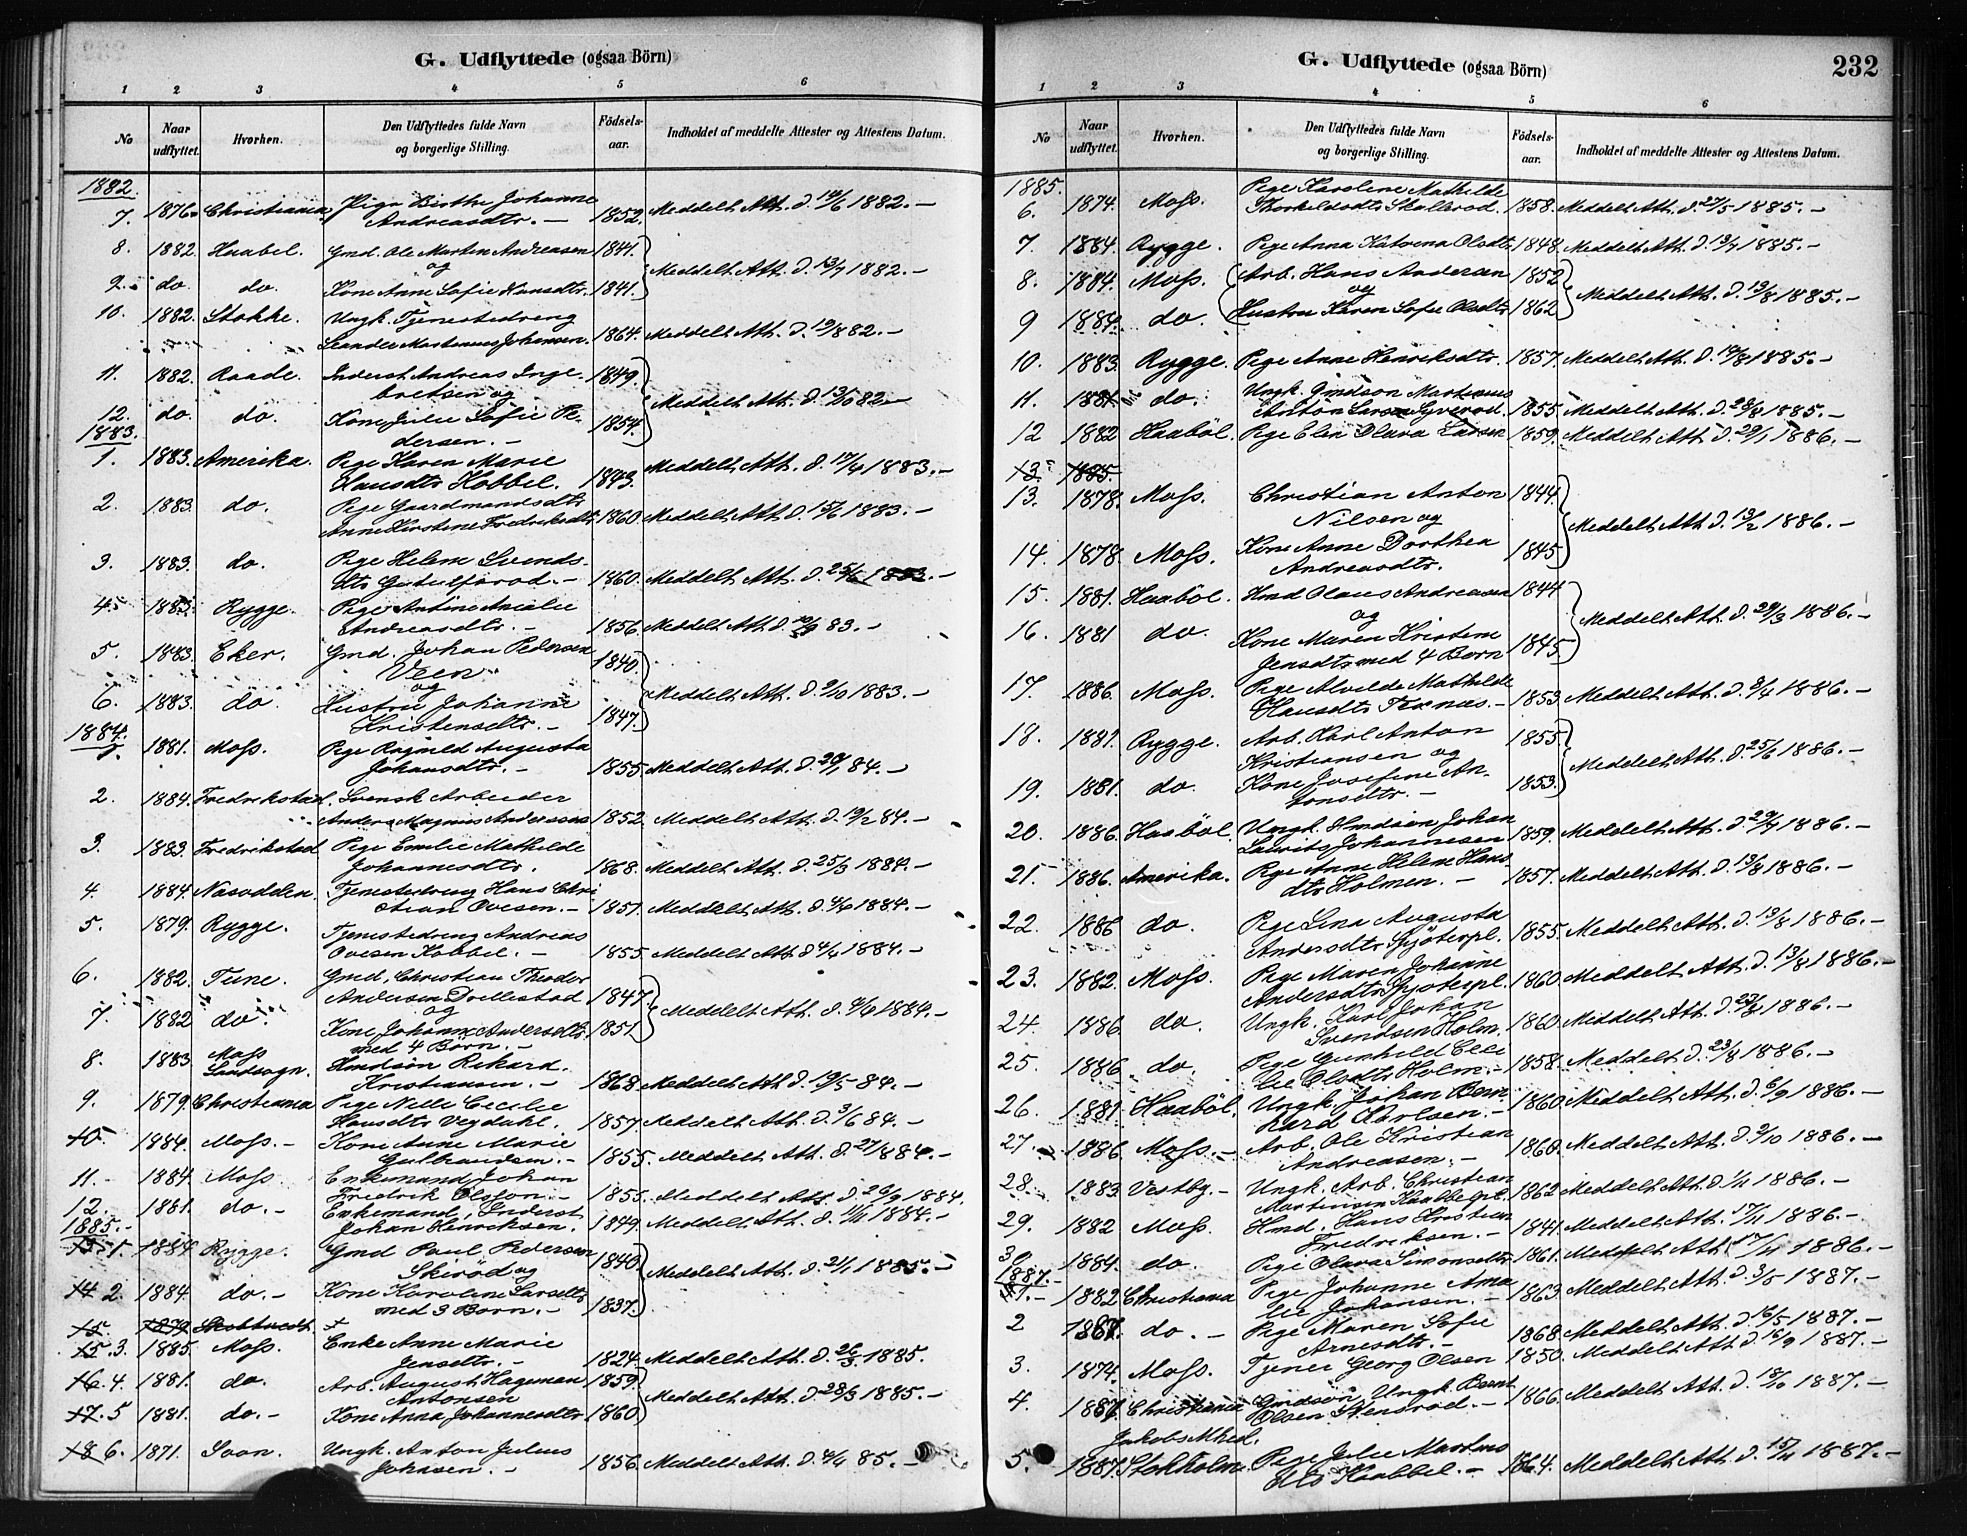 G. Udflyttede (ogsaa Börn)
1 2 3 4 5 6
No Naar udflyttet. Hvorhen. Den Udflyttedes fulde Navn og borgerlige Stilling. Födsels-aar. Indholdet af meddelte Attester og Attestens Datum.
1882.
7. 1876 Christiania Pige Birthe Johanne
Andreasdtr. — 1852. Meddelt Att. d. 1882. —
8. 1882. Haabøl. Gmd. Ole Martin Andreasen 1841.
og Meddelt Att. d. 13/9 1882. —
9. do. do. Kone Anne Sofie Hansdtr. 1841.
10. 1882. Stokke. Ungk. Tjenestedreng
Leander Martinius Johansen. 1864. Meddelt Att. d. 19/8 82. —
11. 1882. Raade. Inderst Andreas Inge- 1849.
bretsen og Meddelt Att. d. 13/10 82. —
12. do. do. Kone Julie Sofie Pe-
dersen. — 1854.
1883.
1. 1883. Amerika. Pige Karen Marie
Hansdtr Kobbel. 1843. Meddelt Att. d. 17/4 1883. —
2. 1883. do. Pige Gaardmandsdtr
Anne Kirstine Fredriksdtr 1860. Meddelt Att. d. 1883. —
3. 1883. do. Pige Helene Svends-
dtr. — 1860. Meddelt Att. d. 25/6 1883. —
4. 1883. Rygge. Pige Antine Amalie
Andreasdtr. — 1856. Meddelt Att. d. 83. —
5. 1883. Eker. Gmd. Johan Pedersen 1840.
Veen
og Meddelt Att. d. 9/10 1883. —
6. 1883. do. Hustru Johanne
Kristensdtr. — 1847.
1884.
1. 1881. Moss. Pige Ragnild Augusta
Johansdtr. — 1855. Meddelt Att. d. 84. —
2. 1884. Fredrikstad. Svensk Arbeider
Anders Magnus Andersson 1852. Meddelt Att. d. 19/2 84. —
3. 1883. Fredrikstad. Pige Emilie Mathilde
Johannesdtr. 1868. Meddelt Att. d. 25/3 1884. —
4. 1884. Næsodden. Tjenestedreng Hans Chri-
stian Ovesen. — 1851. Meddelt Att. d. 4/4 1884. —
5. 1879. Rygge. Tjenestedreng Andreas
Ovesen Kobbel. — 1855. Meddelt Att. d. 4/4 1884. —
6. 1882. Tune. Gmd. Christian Theodor
Andersen Drellestad 1847.
og Meddelt Att. d. 1884. —
7. 1882 do. Kone Johanne Andersdtr. 1851.
med 4 Børn. —
8. 1883. Moss
Landsogn. Hmdsøn Rikard
Kristiansen. — 1868. Meddelt Att. d. 19/5 84. —
9. 1879. Christiania Pige Nelle Cecilie
Hansdtr Vegdahl. 1857. Meddelt Att. d. 3/6 84. —
10. 1884. Moss. — Kone Anne Marie
Gulbrandsen. — 1855. Meddelt Att. d. 27/8 84. —
11. 1884. Moss. Enkemand Johan
Fredrik Olsson. — 1855. Meddelt Att. d. 26/9 1884.
12. 1881. do. — Enkemand, Inderst
Johan Henriksen. 1849. Meddelt Att. d. 1884. —
1885. —
1. 1884. Rygge. Gmd Paul Pedersen 1840.
Skirød og Meddelt Att. d. 2/1 1885. —
14 2. 1884. do. — Kone Karoline Larsdtr
med 3 Børn. — 1837.
15. 1879
15. 3. 1885. Moss. Enke Anne Marie
Jensdtr. — 1824. Meddelt Att. d. 26/3 1885.
16. 4. 1881. do. Arb. August Hageman 1859
Antonsen Meddelt Att. d. 28/3 1885. —
17. 5 1881. do. — Kone Anna Johannesdtr 1860
18 6. 1871. Soon. Ungk. Anton Julius
Johasen. — 1856. Meddelt Att. d. 4/4 85. —
G. Udflyttede (ogsaa Börn)
232
1 2 3 4 5 6
No Naar udflyttet. Hvorhen. Den Udflyttedes fulde Navn og borgerlige Stilling. Födsels-aar. Indholdet af meddelte Attester og Attestens Datum.
1885.
6. 1874. Moss. Pige Karoline Mathilde
Thorkildsdtr Skallerød. 1858. Meddelt Att. d. 27/5 1885. —
7. 1884. Rygge. Pige Anna Katrina Olsdtr 1848. Meddelt Att. d. 13/7 1885. —
8. 1884. Moss. Arb. Hans Andersen 1852
og Meddelt Att. d. 13/8 1885. —
9 1884. do. Hustru Karen Sofie Olsdtr 1862
10. 1883. Rygge. Pige Anne Henriksdtr. 1857. Meddelt Att. d. 1885. —
11. 1881 do. Ungk. Gmdsøn Martinius
Anton Larsen Syverød. 1855. Meddelt Att. d. 28/8 1885. —
12 1882 Haabøl. Pige Elen Olava Larsen 1859. Meddelt Att. d. 29/1 1886. —
13 1885.
13. 1878. Moss. Christian Anton 1844.
Nilsen og Meddelt Att. d. 13/2 1886. —
14. 1878. Moss. Kone Anne Dorthea
Andreasdtr. 1845.
15. 1881. Haabøl. Hmd Olaus Andreasen 1844
og Meddelt Att. d. 29/3 1886. —
16. 1881 do. Kone Maren Kristine
Jensdtr med 4 Børn 1845.
17. 1886. Moss. Pige Alvilde Mathilde
Hansdtr Ternæs. — 1853. Meddelt Att. d. 3/4 1886. —
18. 1881. Rygge. Arb. Karl Anton 1855.
Kristiansen og Meddelt Att. d. 25/6 1886. —
19. 1881. do. Kone Josefine An-
tonsdtr. — 1853.
20. 1886. Haabøl. Ungk. Hmdsøn Johan
Laurits Johannesen 1859. Meddelt Att. d. 29/7 1886. —
21. 1886. Amerika. Pige Anne Helene Hans-
dtr Holmen. — 1857. Meddelt Att. d. 13/8 1886. —
22. 1886 do. Pige Lina Augusta
Andersdtr 1855. Meddelt Att. d. 13/8 1886. —
23. 1882. Moss. Pige Maren Johanne
Andersdtr 1860. Meddelt Att. d. 13/8 1886. —
24. 1886. do. Ungk. Karl Johan
Svendsen Holm. 1860. Meddelt Att. d. 23/8 1886. —
25. 1886. do. Pige Gunhild Ceci-
lie Olsdtr Holm. — 1858. Meddelt d. 23/8 1886. —
26. 1881. Haabøl. Ungk. Johan Bern-
hard Karlsen. — 1860. Meddelt Att. d. 6/9 1886. —
27. 1886. Moss. — Arb. Ole Kristian
Andreasen. — 1860. Meddelt Att. d. 9/10 1886. —
28. 1883. Vestby. — Ungk. Arb. Christian
Martinsen 1862. Meddelt Att. d. 1886. —
29. 1882 Moss. Hmd. Hans Kristian
Fredriksen. — 1841. Meddelt Att. d. 17/11 1886. —
30. 1884. do. Pige Olava Simonsdtr 1861. Meddelt Att. 17/11 1886. —
1887. —
1. — 1882 Christiania Pige Johanne Ama-
lie Johansen. — 1863. Meddelt Att. d. 3/5 1887. —
2 1887. do. — Pige Maren Sofie
Arnesdtr. — 1868. Meddelt Att. d. 16/5 1887. —
3. 1874. Moss. Tjener Georg Olsen 1850. Meddelt Att. d. 16/9 1887. —
4 1887. Christiania Gmdsøn Ungk. Bernt
Olsen Stensrød. — 1866. Meddelt Att. d. 18/10 1887. —
Jakobs Mhed.
5. 1887. Stokholm. Pige Julie Martins-
dtr Kaabbel. — 1864. Meddelt Att. d. 15/11 1887. —